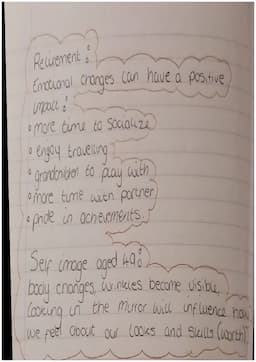 Retirement :
Emotional changes can have a positive
impact !
• more time to socialize
• enjoy travelling
• grandchildren to play with
• more time with partner
• pride in achievements.
Self image aged 49 :
body changes, wrinkles become visible,
looking in the mirror will influence how
we feel about our looks and skills (worth)